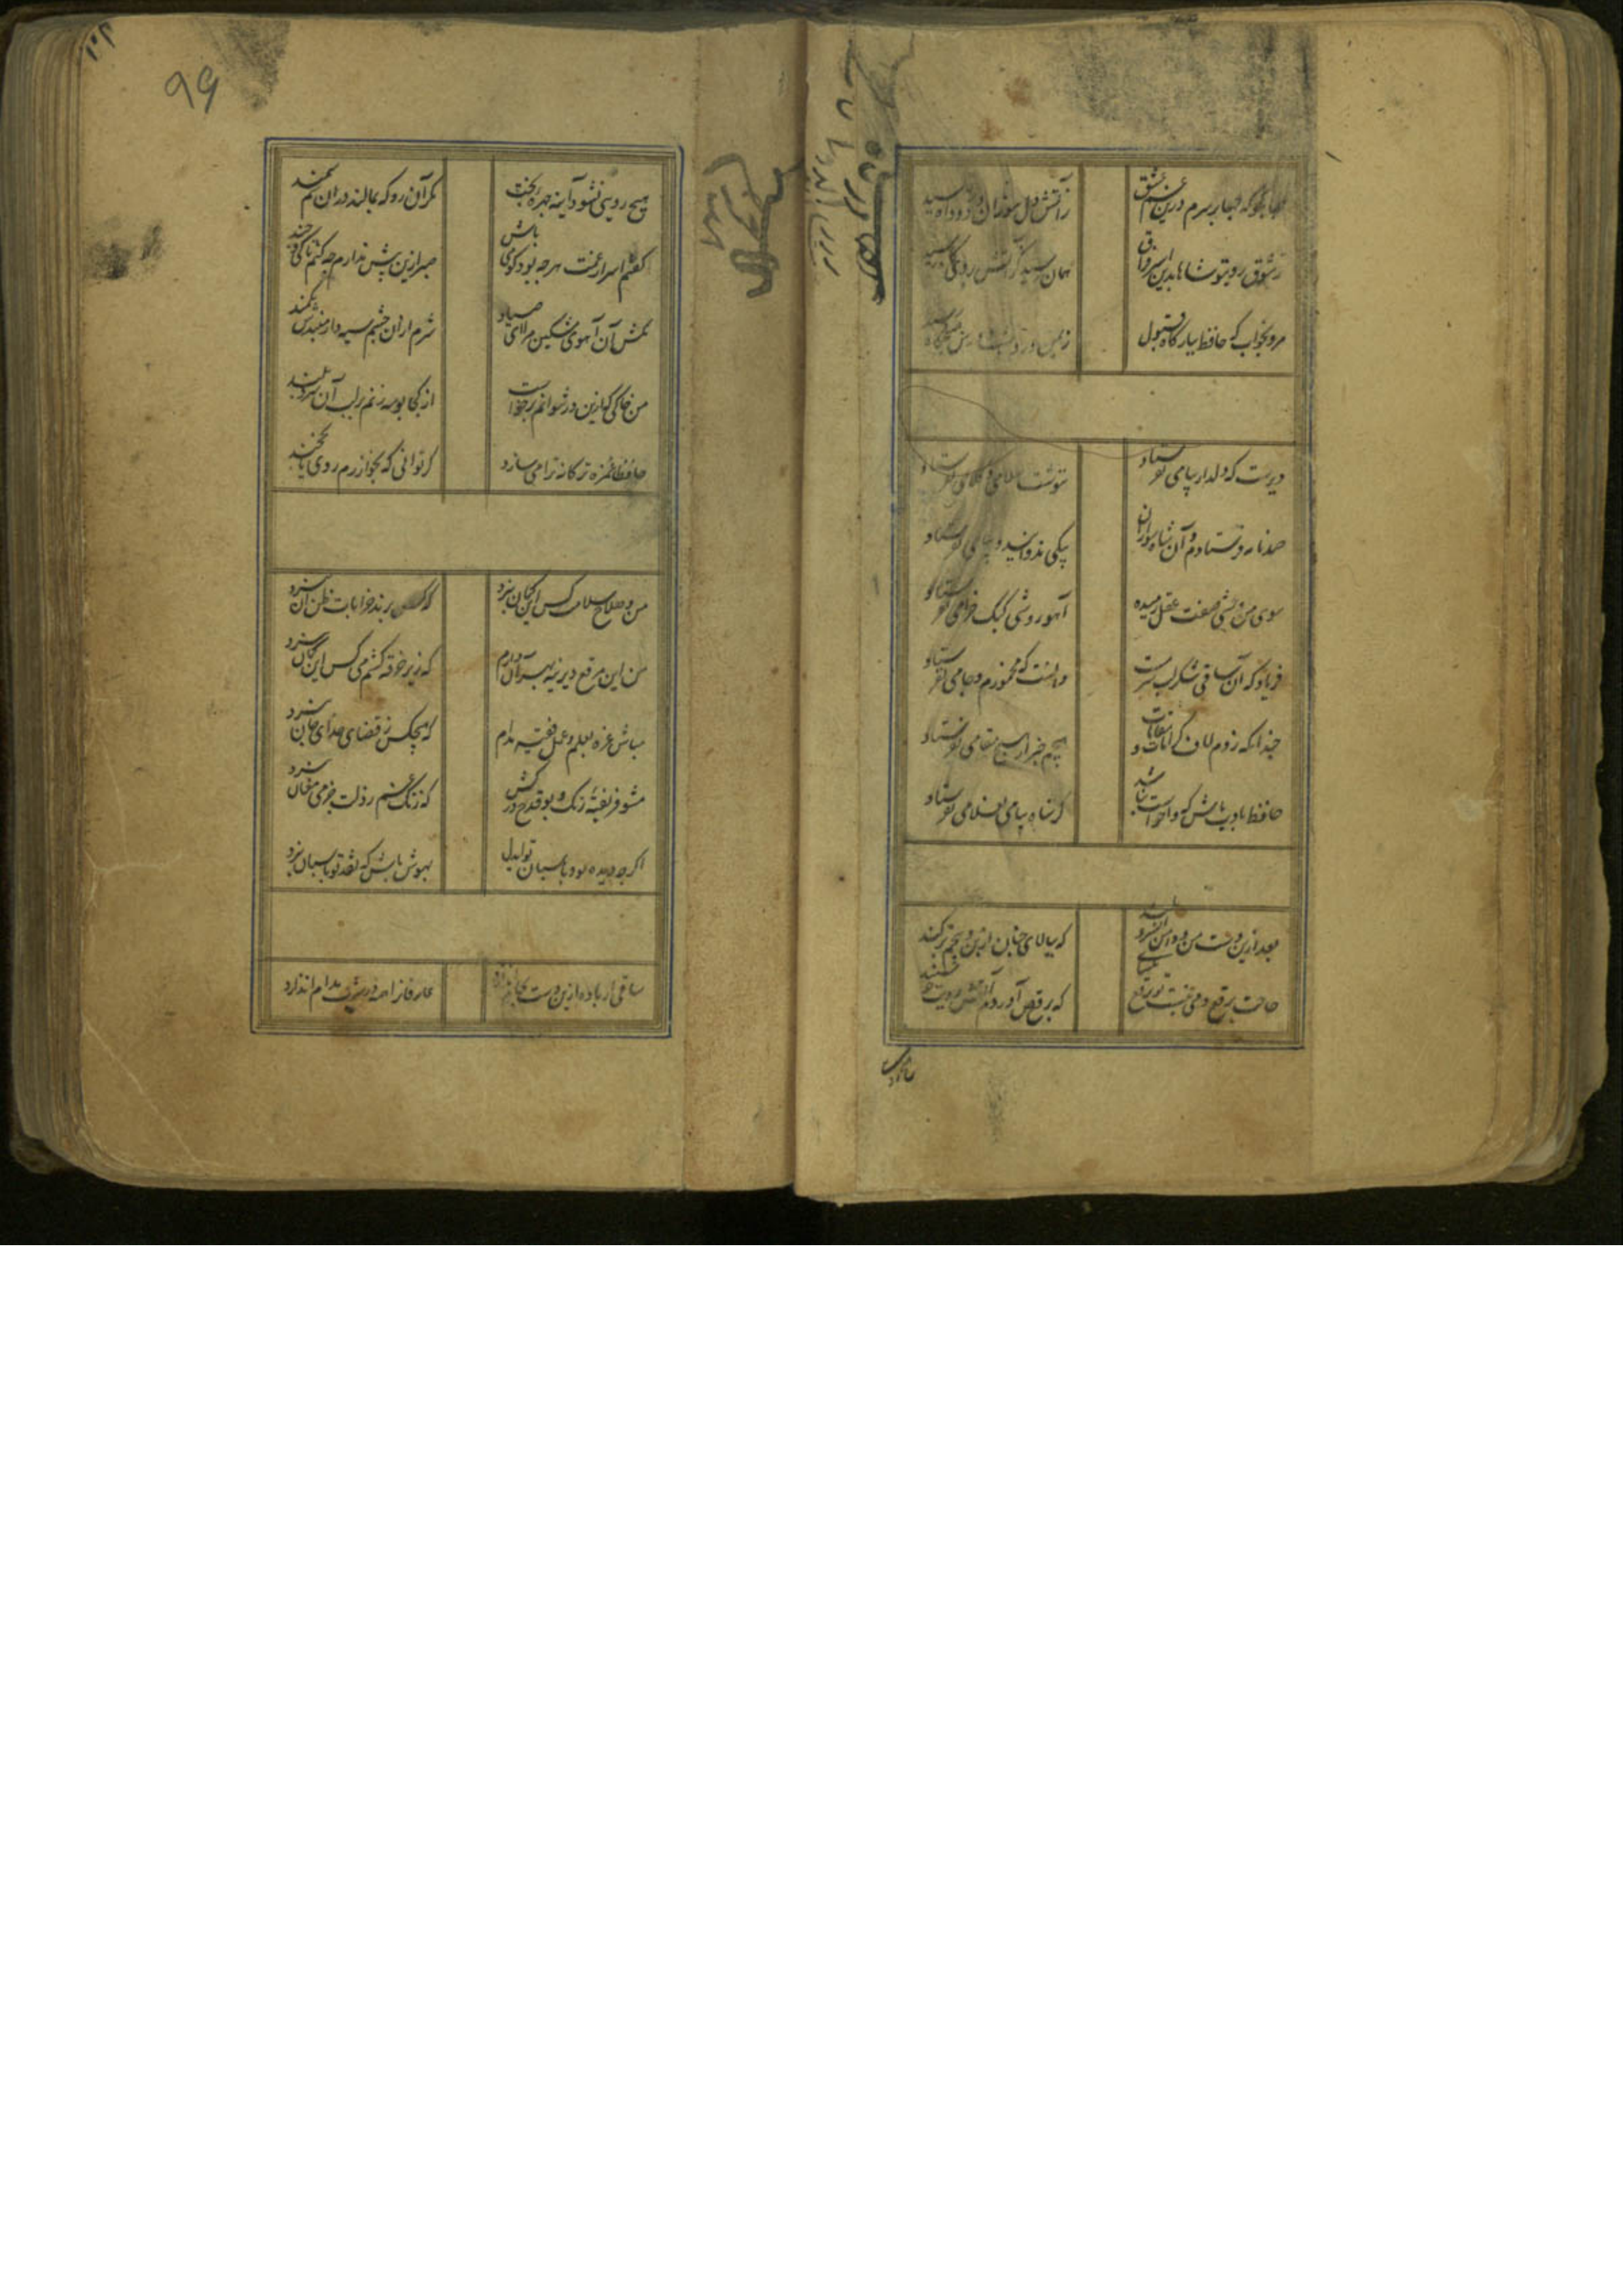 صبا بگو که چها بر سرم درین غم عشق
ز آتش دل سوزان و دود آه رسید
ز شوق روی تو شاها بدین اسیر فراق
همان رسید کز آتش بروی کاه رسید
مرو بخواب که حافظ ببارگاه قبول
دیرست که دلدار پیامی نفرستاد
ننوشت سلامی و کلامی نفرستاد
صد نامه فرستادم و آن شاه سواران
پیکی ندوانید و پیامی نفرستاد
سوی من وحشی صفت عقل رمیده
آهو روشی کبک خرامی نفرستاد
فریاد که آن ساقی شکر لب سرمست
دانست که مخمورم و جامی نفرستاد
چندانکه زدم لاف کرامات و مقامات
هیچم خبر از هیچ مقامی نفرستاد
حافظ بادب باش که واخواست نباشد
گر شاه پیامی بغلامی نفرستاد
بعد ازین دست من و دامن آن سرو بلند
که ببالای چمان از بن و بیخم برکند
حاجت مطرب و می نیست تو برقع بگشای
که برقص آوردم آتش رویت چو سپند
هیچ رویی نشود آینه چهره بخت
مگر آن رو که بمالند در آن سم سمند
گفتم اسرار غمت هر چه بود گو می باش
صبر ازین بیش ندارم چه کنم تا کی و چند
مکش آن آهوی مشکین مرا ای صیاد
شرم از آن چشم سیه دار و مبندش بکمند
من خاکی که ازین در نتوانم برخاست
از کجا بوسه زنم بر لب آن سرو بلند
حافظا غمزه ترکانه ترا می سازد
من و صلاح و سلامت کس این گمان نبرد
که کس برند خرابات ظن آن نبرد
من این مرقع دیرینه بهر آن دارم
که زیر خرقه کشم می کس این گمان نبرد
مباش غره بعلم و عمل فقیه مدام
که هیچکس ز قضای خدای جان نبرد
مشو فریفته رنگ و بو قدح درکش
که زنگ غم ز دلت جز می مغان نبرد
اگر چه دیده بود پاسبان تو ایدل
بهوش باش که نقد تو پاسبان نبرد
ساقی ار باده ازین دست بجام اندازد
عارفانرا همه در شرب مدام اندازد